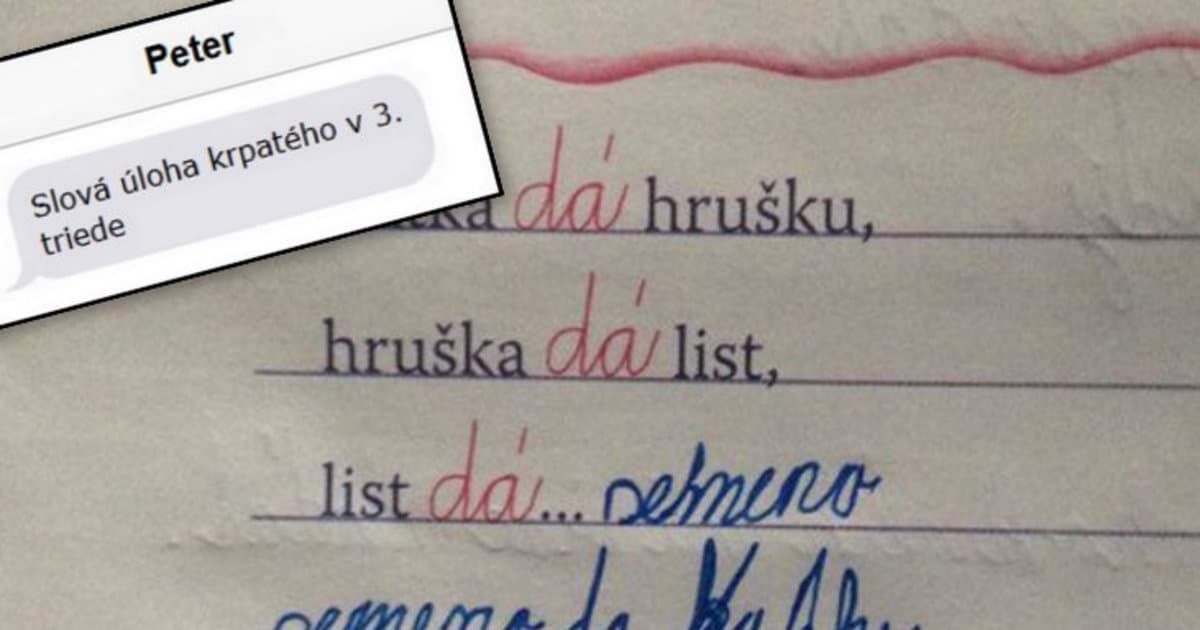 Peter
Slová úloha krpatého v 3.
triede
dá hrušku,
hruška dá list,
list dá... semeno
semeno da